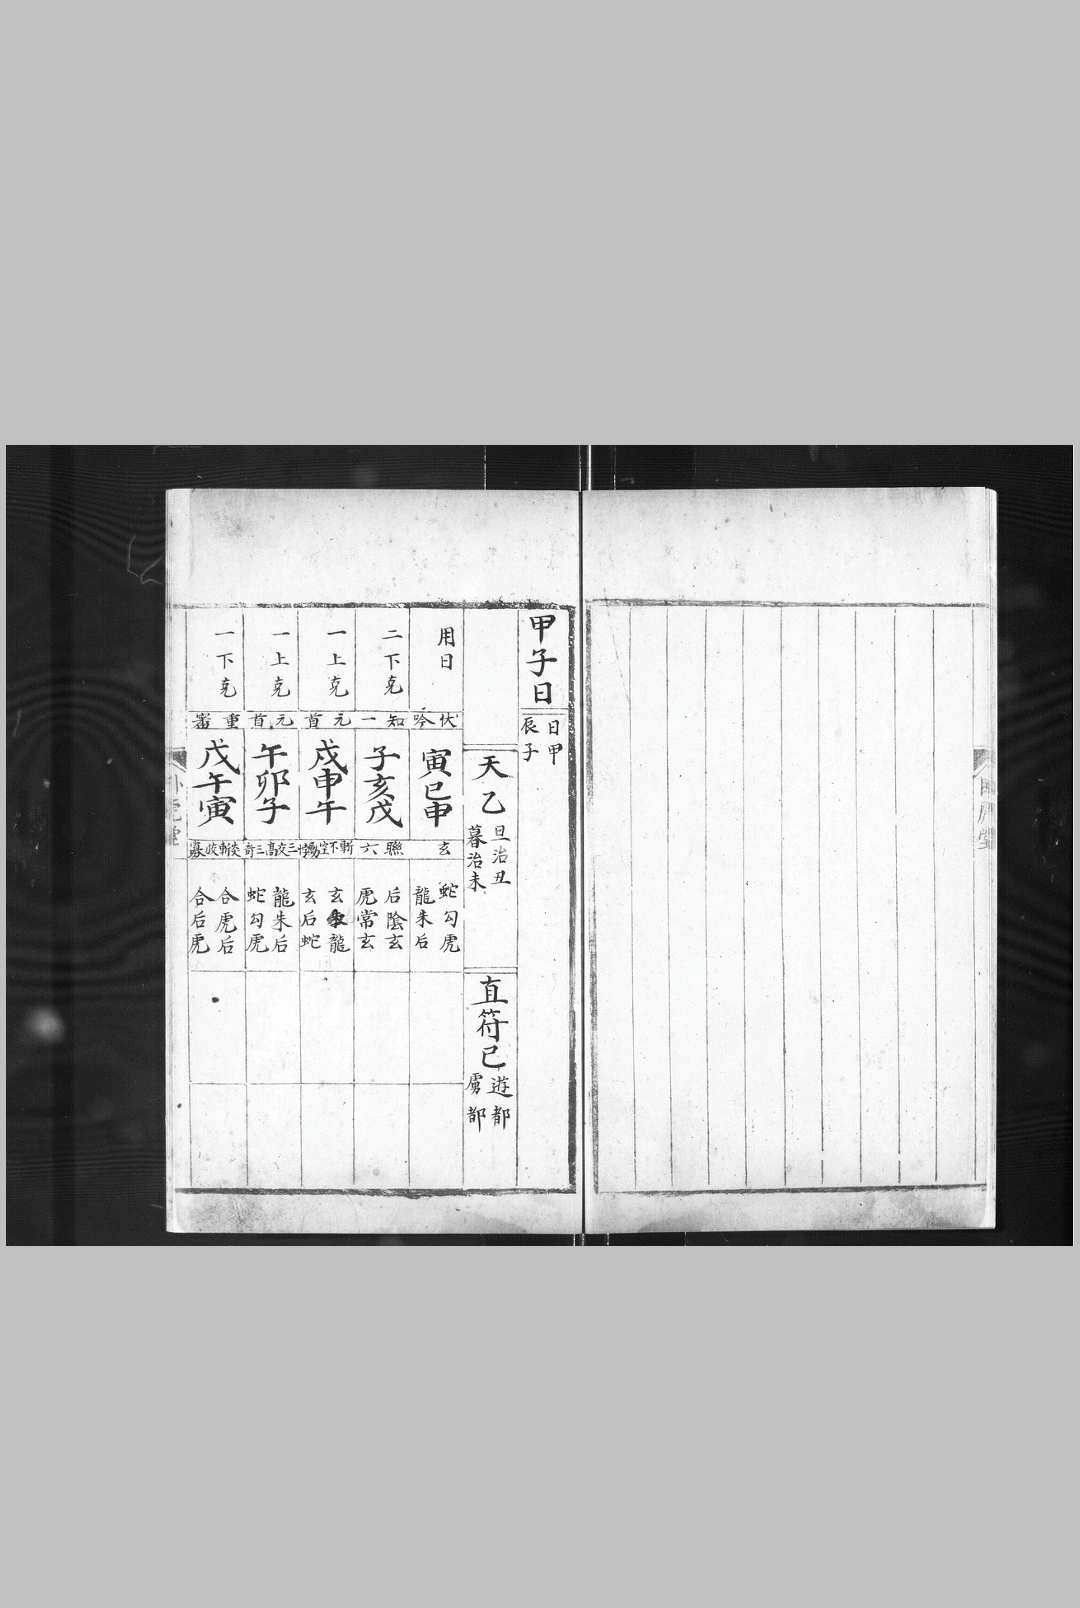 甲子日
日甲
辰子
天乙
旦治丑
暮治未
直符巳
遊都
虜都
用日
伏吟
寅巳申
玄
蛇勾虎
龍朱后
二下克
知一
子亥戌
聯六
后陰玄
虎常玄
一上克
元首
戌申午
斬不空
玄
龍
玄后蛇
一上克
元首
午卯子
三交高三奇
龍朱后
蛇勾虎
一下克
重審
戌午寅
合虎后
合后虎